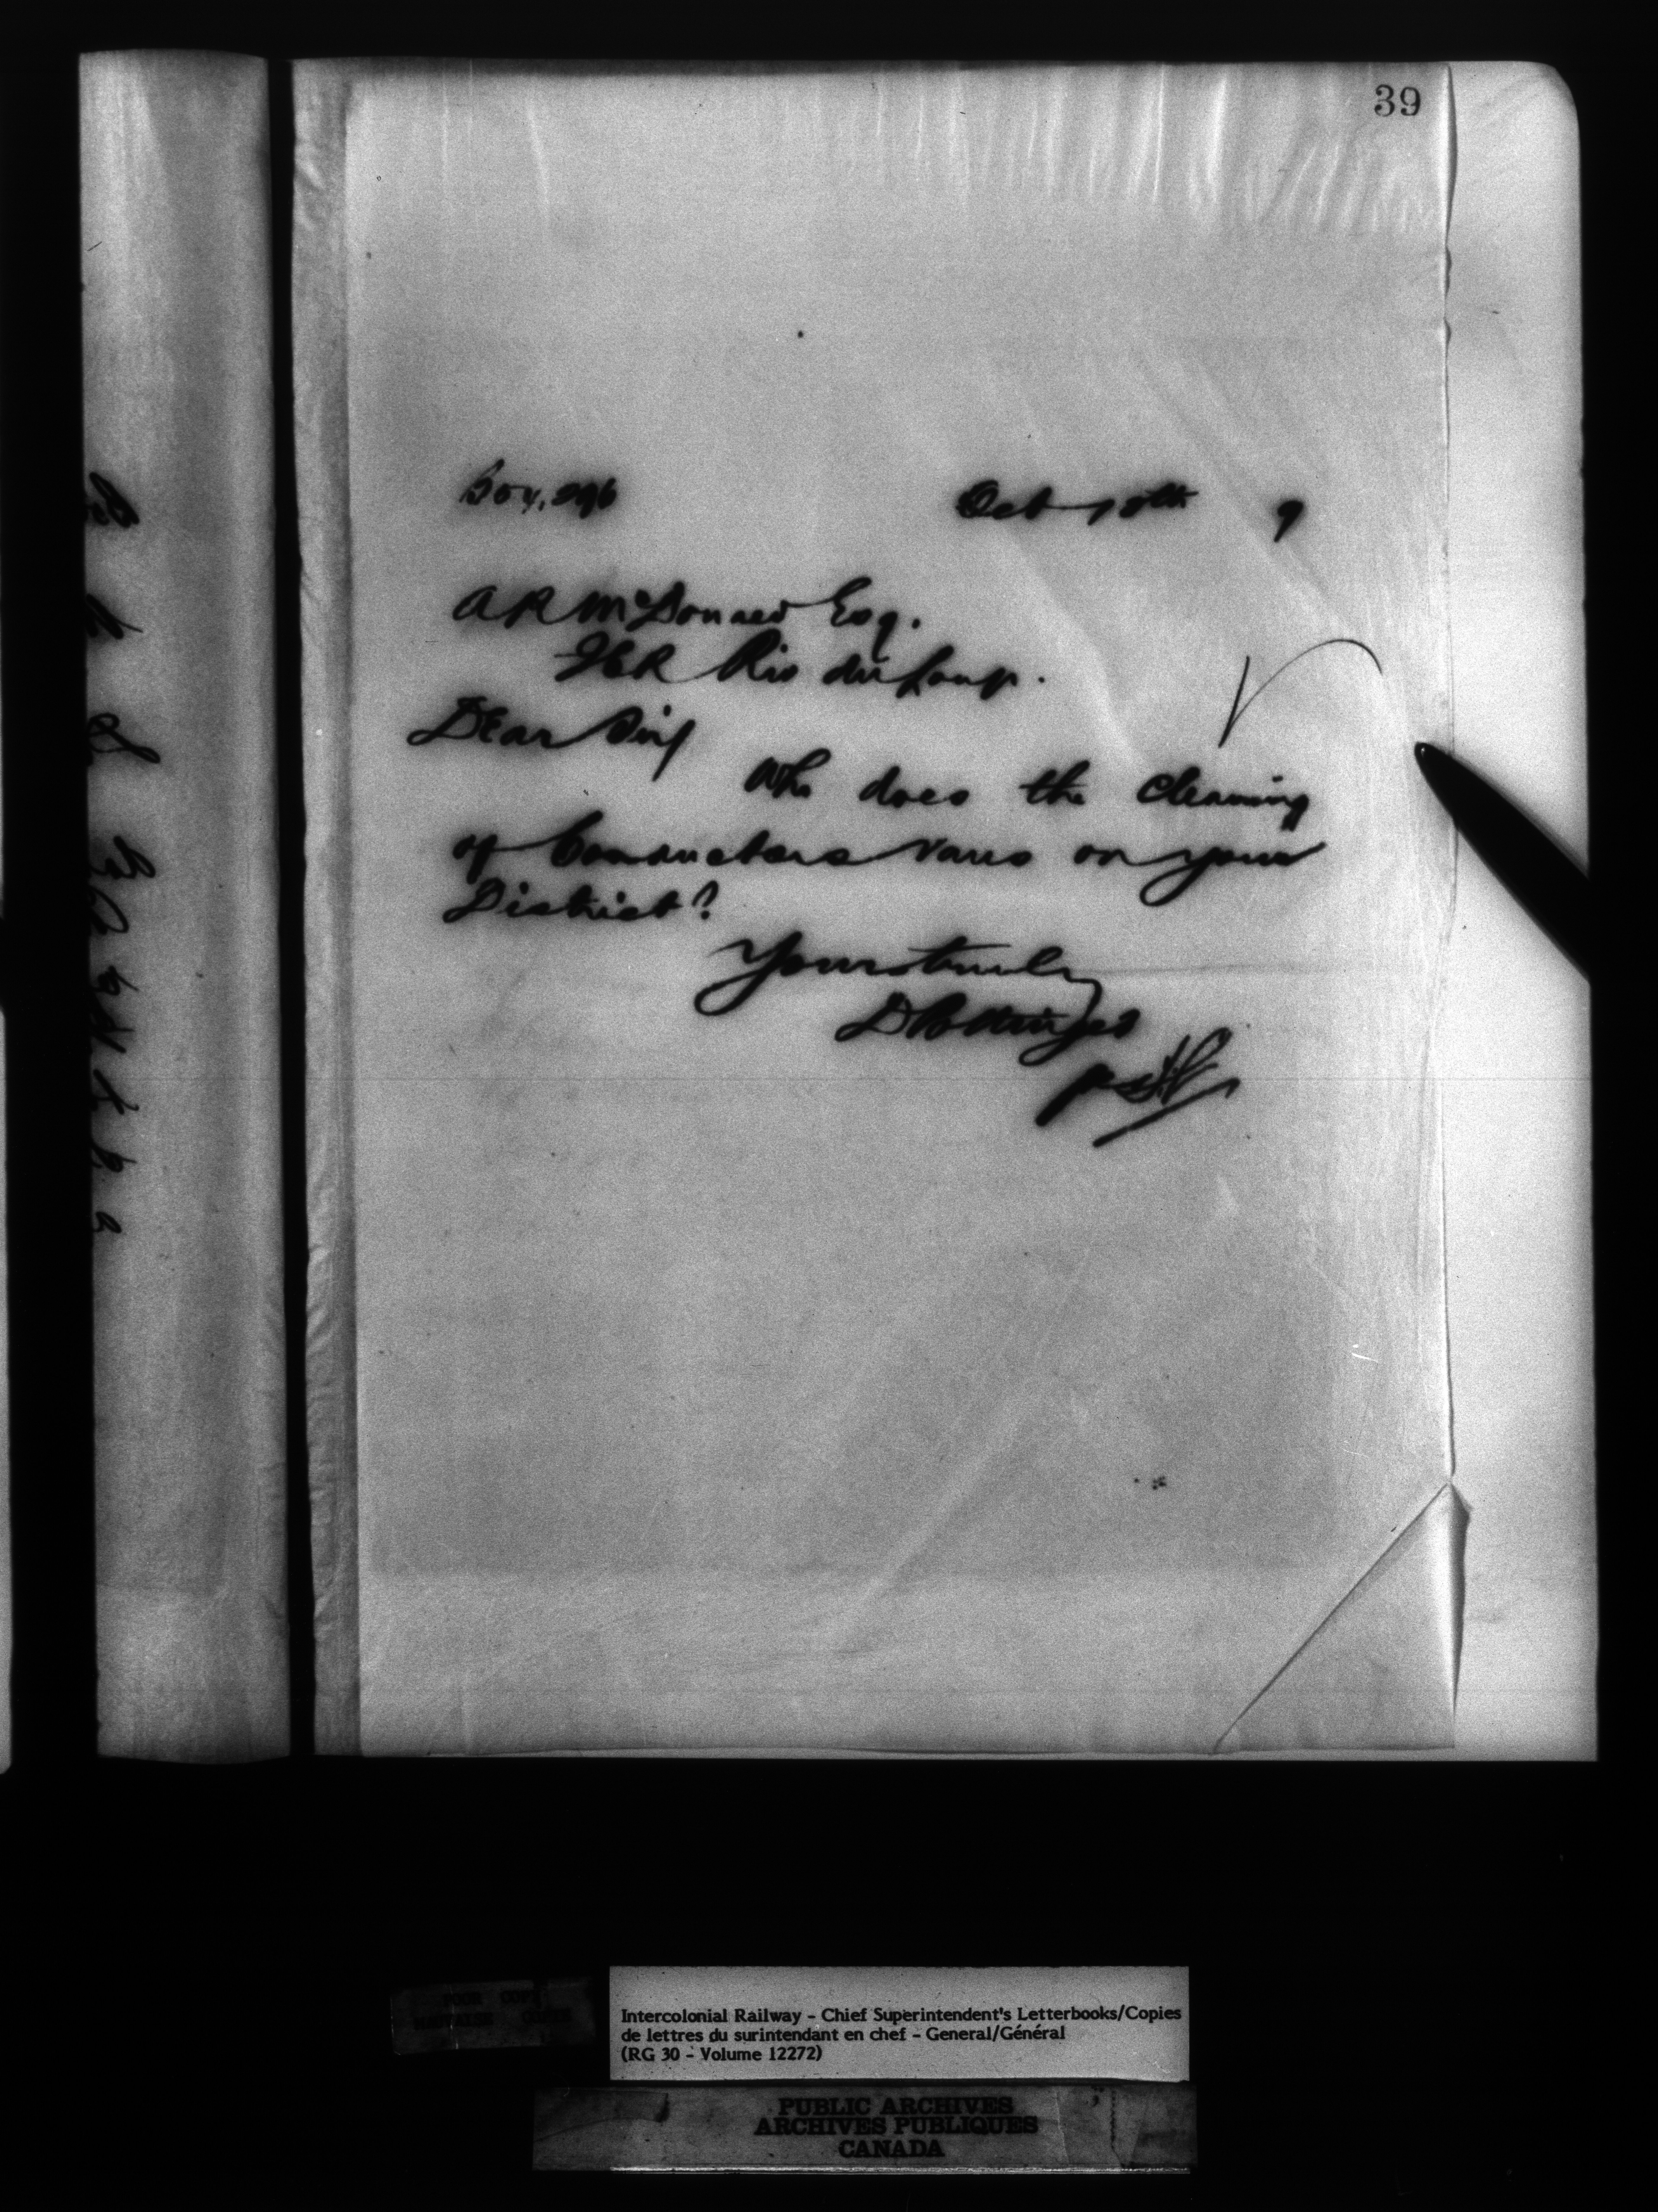 39
Oct 18th 9
A R McDonald Esq.
ICR Riv du Loup.
Dear Sir/
Who does the cleaning
of Conductors Vans on your
District?
Yours truly
D Pottinger
POOR COPY
MAUVAISE COPIE
Intercolonial Railway - Chief Superintendent's Letterbooks/Copies
de lettres du surintendant en chef - General/Général
(RG 30 - Volume 12272)
PUBLIC ARCHIVES
ARCHIVES PUBLIQUES
CANADA